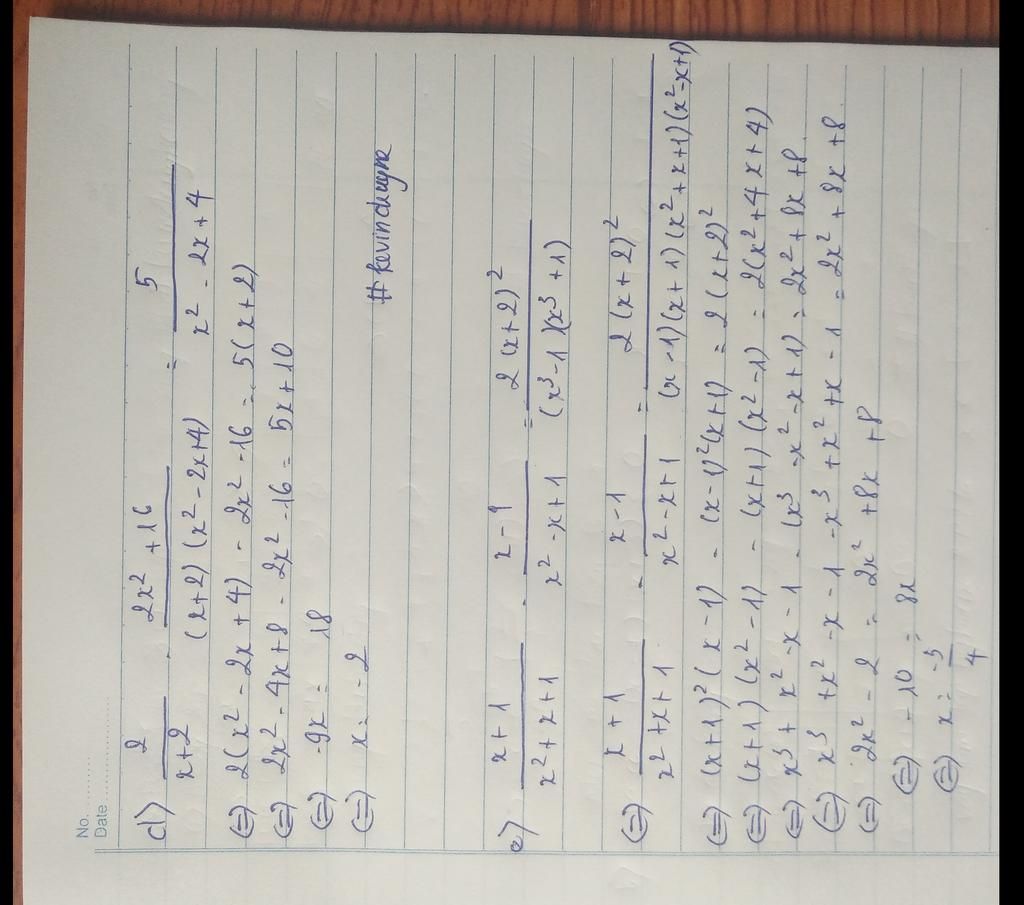 No.
Date
d) 2/(x+2) - (2x² + 16)/((x+2)(x² - 2x+4)) = 5/(x² - 2x + 4)
(=) 2(x² - 2x + 4) - 2x² - 16 = 5(x + 2)
(=) 2x² - 4x + 8 - 2x² - 16 = 5x + 10
(=) -9x = 18
(=) x = - 2
#kevinchuyna
e) (x + 1)/(x² + x + 1) - (x - 1)/(x² - x + 1) = 2(x + 2)²/((x³ - 1)(x³ + 1))
(=) (x + 1)/(x² + x + 1) - (x - 1)/(x² - x + 1) = 2(x + 2)²/((x - 1)(x + 1)(x² + x + 1)(x² - x + 1))
(=) (x + 1)² (x - 1) - (x - 1)² (x + 1) = 2 (x + 2)²
(=) (x + 1) (x² - 1) - (x + 1) (x² - 1) = 2(x² + 4x + 4)
(=) x³ + x² - x - 1 - (x³ - x² - x + 1) = 2x² + 8x + 8.
(=) x³ + x² - x - 1 - x³ + x² + x - 1 = 2x² + 8x + 8.
(=) 2x² - 2 = 2x² + 8x + 8
(=) - 10 = 8x
(=) x = -5/4